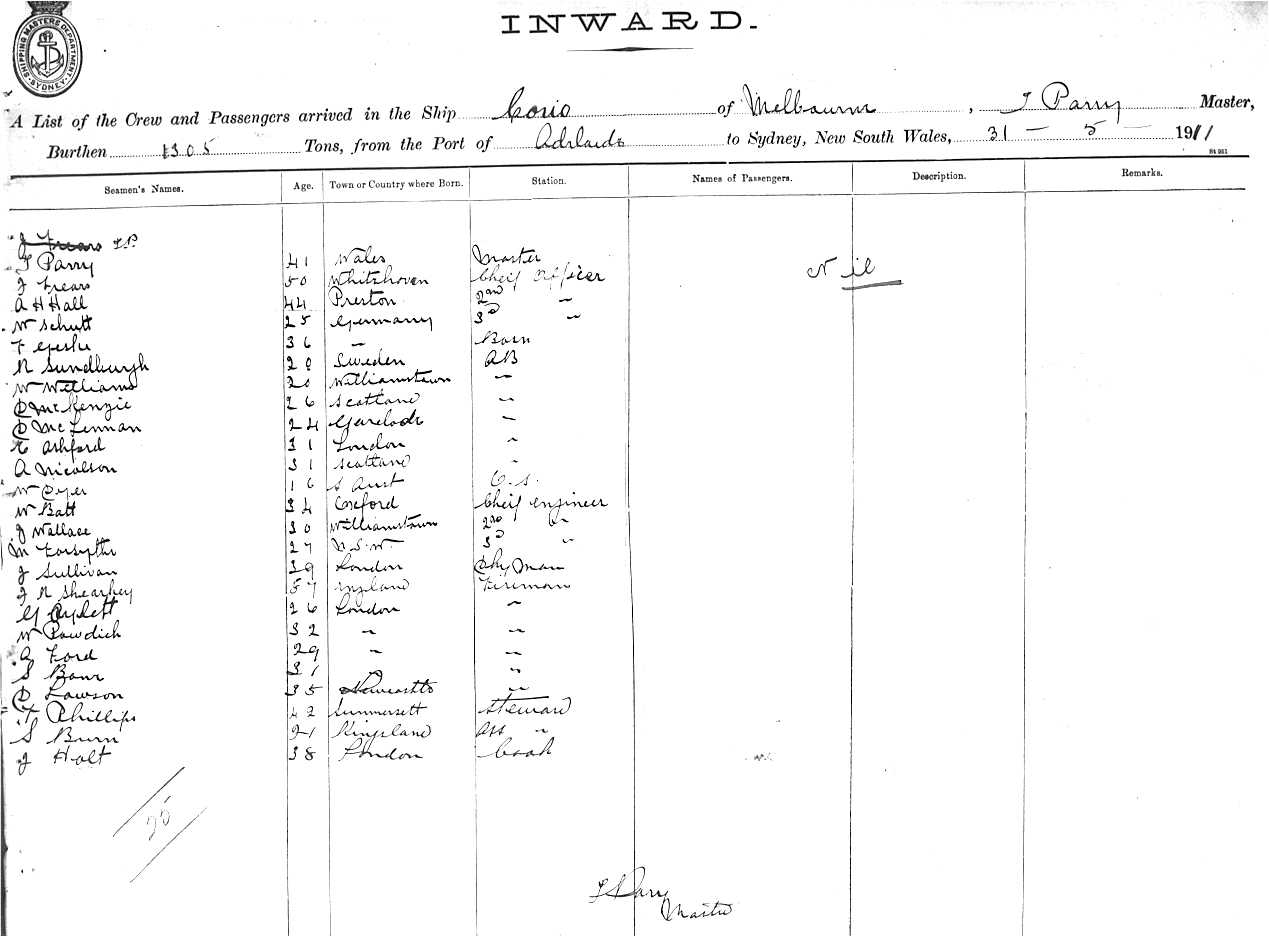 SHIPPING MASTERS DEPARTMENT SYDNEY
INWARD.
A List of the Crew and Passengers arrived in the Ship Corio of Melbourne, T Parry Master,
Burthen 1305 Tons, from the Port of Adelaide to Sydney, New South Wales, 31 - 5 - 1911
Seamen's Names. Age. Town or Country where Born. Station. Names of Passengers. Description. Remarks.
J Frears T.P.
T Parry 41 Wales Master Nil
J Frears 50 Whitehaven Cheif Officer
A H Hall 44 Preston 2nd "
W Schutt 25 Germany 3d "
F 36 " Bosn
R Sundburgh 20 Sweden AB
W Williams 20 Williamstown "
D McKenzie 26 Scotland "
D McLennan 24 "
E Ashford 31 London "
A Nicolson 31 Scotland "
W Dyer 16 S Aust O.S.
W Batt 34 Oxford Cheif engineer
J Wallace 30 Williamstown 2nd "
M Forsythe 27 N.S.W. 3d "
J Sullivan 39 London Dky Man
J R Shearkey 57 England Fireman
G 26 London "
W Powdich 32 " "
A Ford 29 " "
S 31 " "
D Lawson 35 Newcastle "
F Phillips 42 Summersett Steward
S Burn 21 Kingsland Ass "
J Holt 38 London Cook
25
T Parry
Master